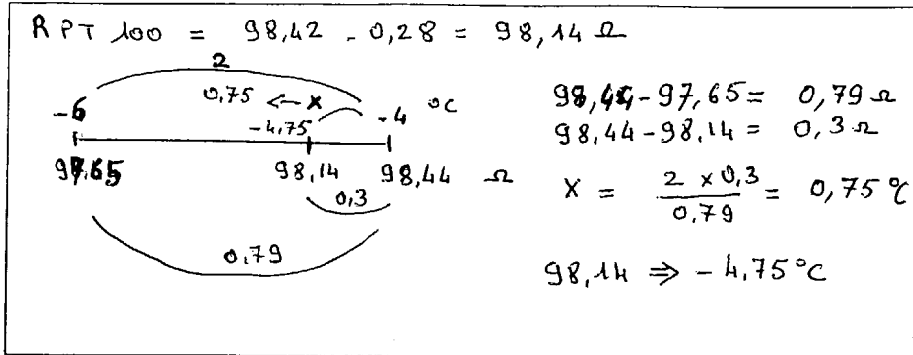 R PT 100 = 98,42 - 0,28 = 98,14 Ω
2
0,75 ← x
-6 -4,75 -4 °C
97,65 98,14 98,44 Ω
0,3
0,79
98,44 - 97,65 = 0,79 Ω
98,44 - 98,14 = 0,3 Ω
X = 2 x 0,3 / 0,79 = 0,75 °C
98,14 ⇒ - 4,75 °C